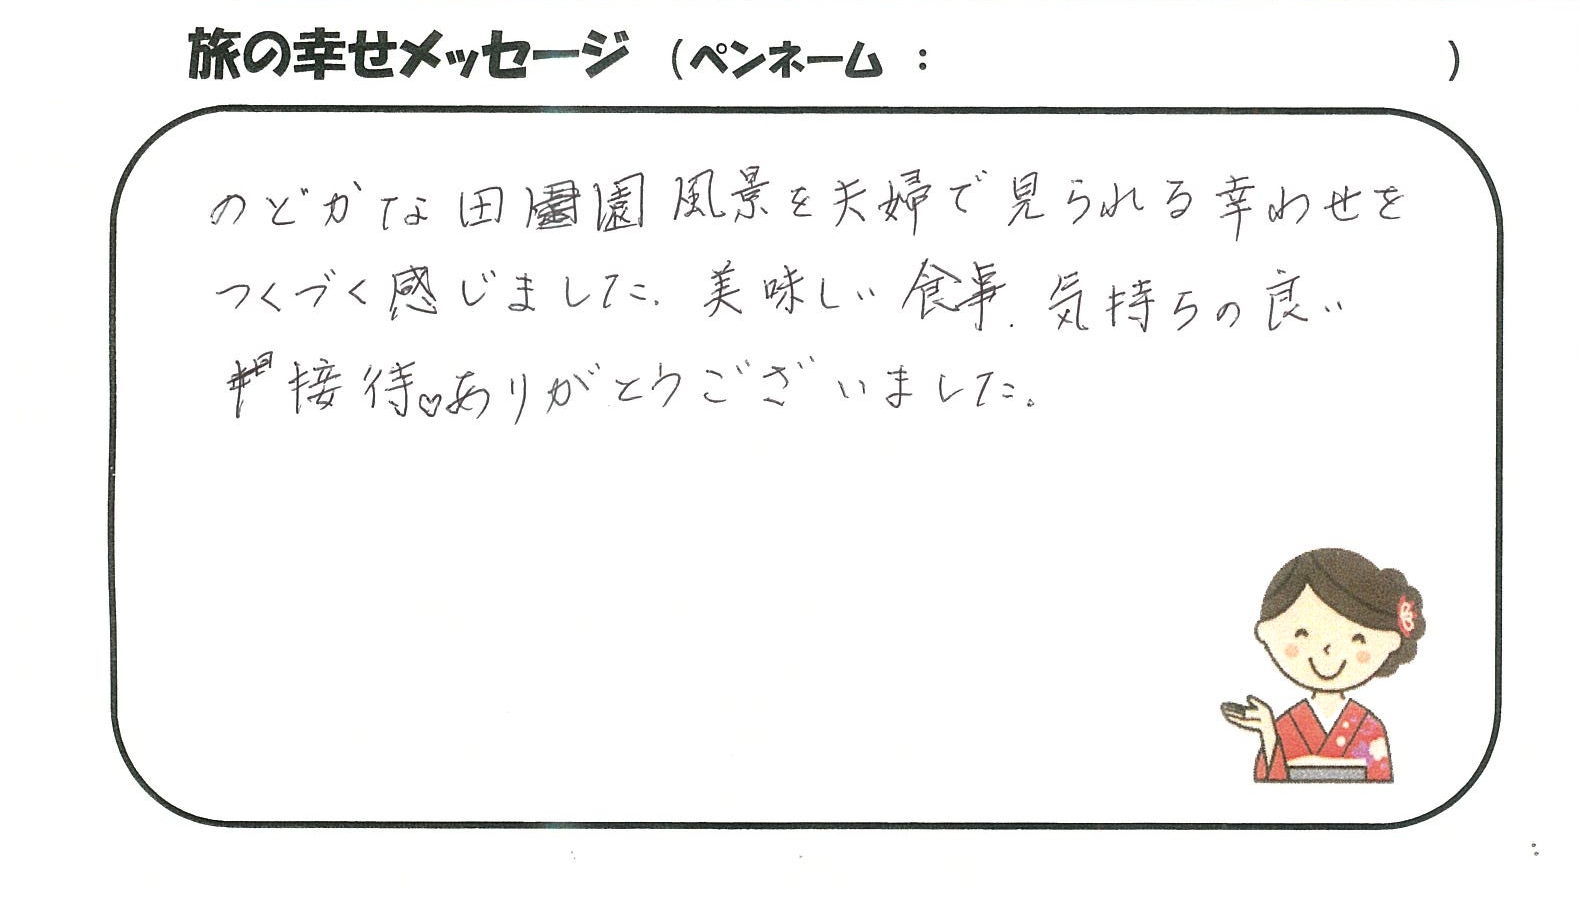 旅の幸せメッセージ (ペンネーム : )
のどかな田園風景を夫婦で見られる幸わせを
つくづく感じました. 美味しい食事. 気持ちの良い
接待♡ありがとうございました。